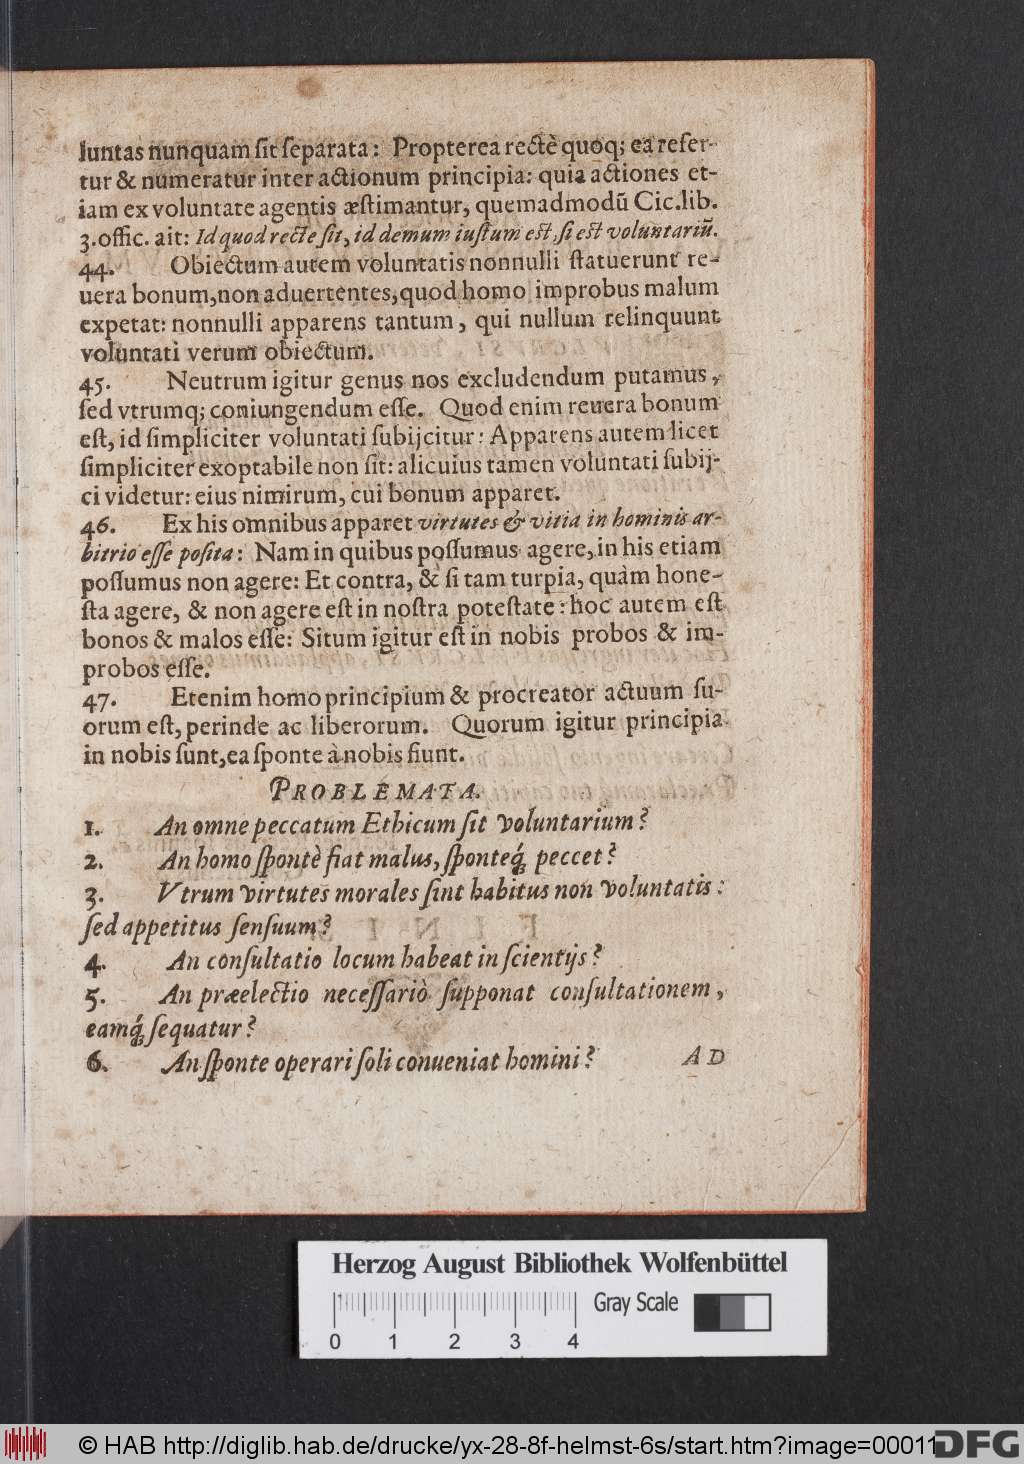 luntas nunquam ſit ſeparata: Propterea rectè quoq; ea refer-
tur & numeratur inter actionum principia: quia actiones et-
iam ex voluntate agentis æſtimantur, quemadmodū Cic. lib.
3. offic. ait: Id quod recte fit, id demum iuſtum eſt, ſi eſt voluntariū.
44. Obiectum autem voluntatis nonnulli ſtatuerunt re-
uera bonum, non aduertentes, quod homo improbus malum
expetat: nonnulli apparens tantum, qui nullum relinquunt
voluntati verum obiectum.
45. Neutrum igitur genus nos excludendum putamus,
ſed vtrumq; coniungendum eſſe. Quod enim reuera bonum
eſt, id ſimpliciter voluntati ſubijcitur: Apparens autem licet
ſimpliciter exoptabile non ſit: alicuius tamen voluntati ſubij-
ci videtur: eius nimirum, cui bonum apparet.
46. Ex his omnibus apparet virtutes & vitia in hominis ar-
bitrio eſſe poſita: Nam in quibus poſſumus agere, in his etiam
poſſumus non agere: Et contra, & ſi tam turpia, quàm hone-
ſta agere, & non agere eſt in noſtra poteſtate: hoc autem eſt
bonos & malos eſſe: Situm igitur eſt in nobis probos & im-
probos eſſe.
47. Etenim homo principium & procreator actuum ſu-
orum eſt, perinde ac liberorum. Quorum igitur principia
in nobis ſunt, ea ſponte à nobis fiunt.
PROBLEMATA.
1. An omne peccatum Ethicum ſit voluntarium?
2. An homo ſpontè fiat malus, ſponteq́; peccet?
3. Vtrum virtutes morales ſint habitus non voluntatis:
ſed appetitus ſenſuum?
4. An conſultatio locum habeat in ſcientijs?
5. An præelectio neceſſariò ſupponat conſultationem,
eamq́; ſequatur?
6. An ſponte operari ſoli conueniat homini? AD
Herzog August Bibliothek Wolfenbüttel
Gray Scale
0 1 2 3 4
© HAB http://diglib.hab.de/drucke/yx-28-8f-helmst-6s/start.htm?image=00011
DFG